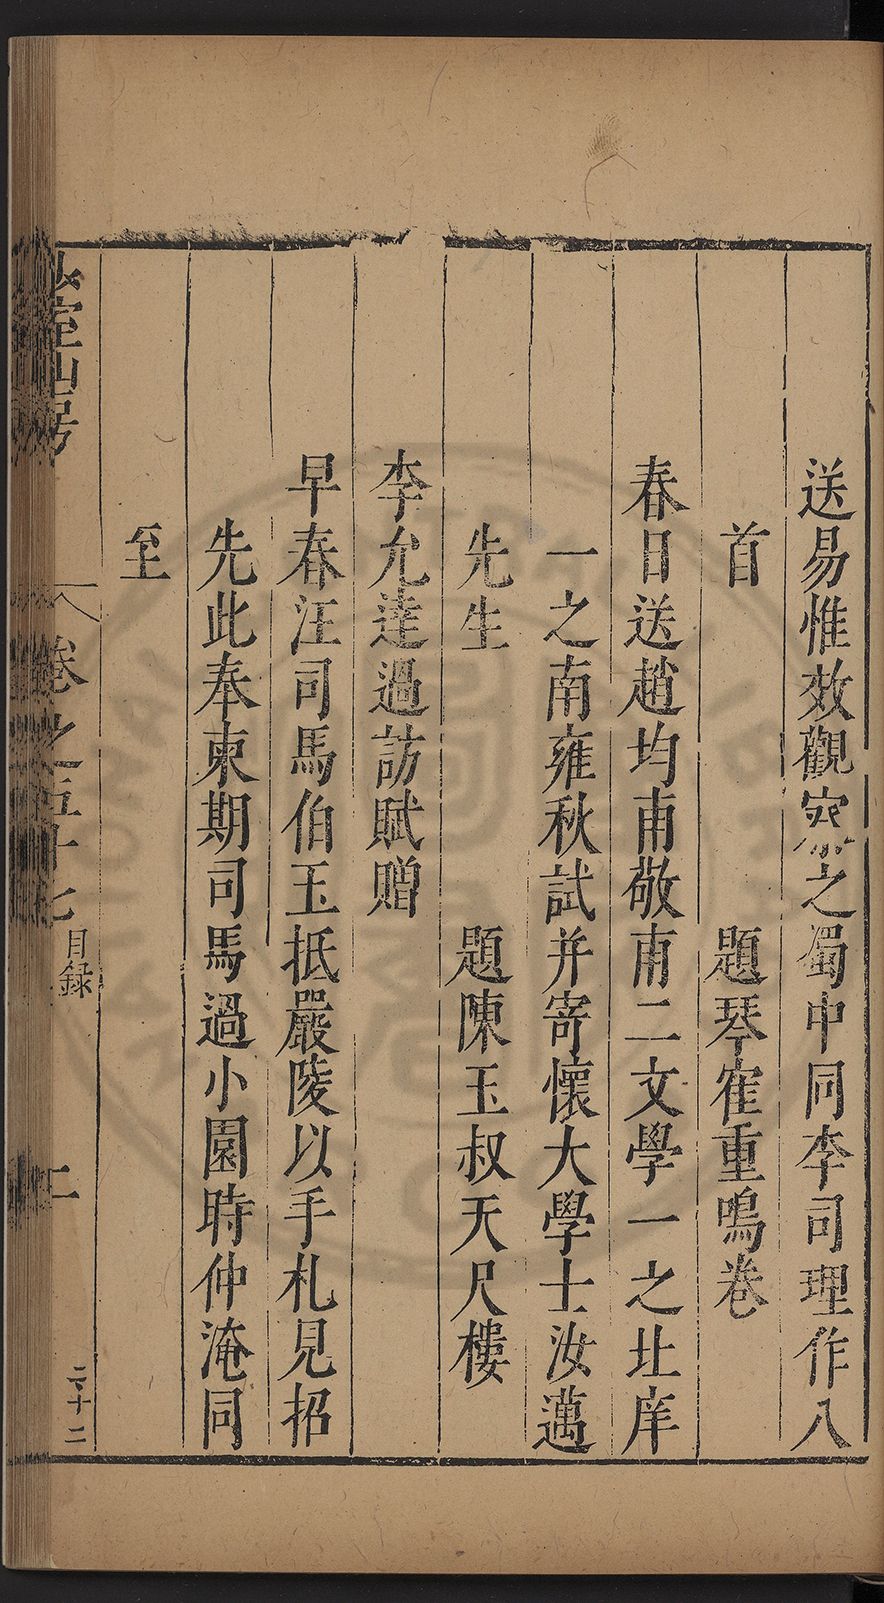 送易惟效觀察之蜀中同李司理作八
首　題琴隺重鳴卷
春日送趙均甫敬甫二文學一之北庠
一之南雍秋試并寄懷大學士汝邁
先生　題陳玉叔天尺樓
李允達過訪賦贈
早春汪司馬伯玉抵嚴陵以手札見招
先此奉柬期司馬過小園時仲淹同
至
少室山房
卷之五十七
目録
二
二十二